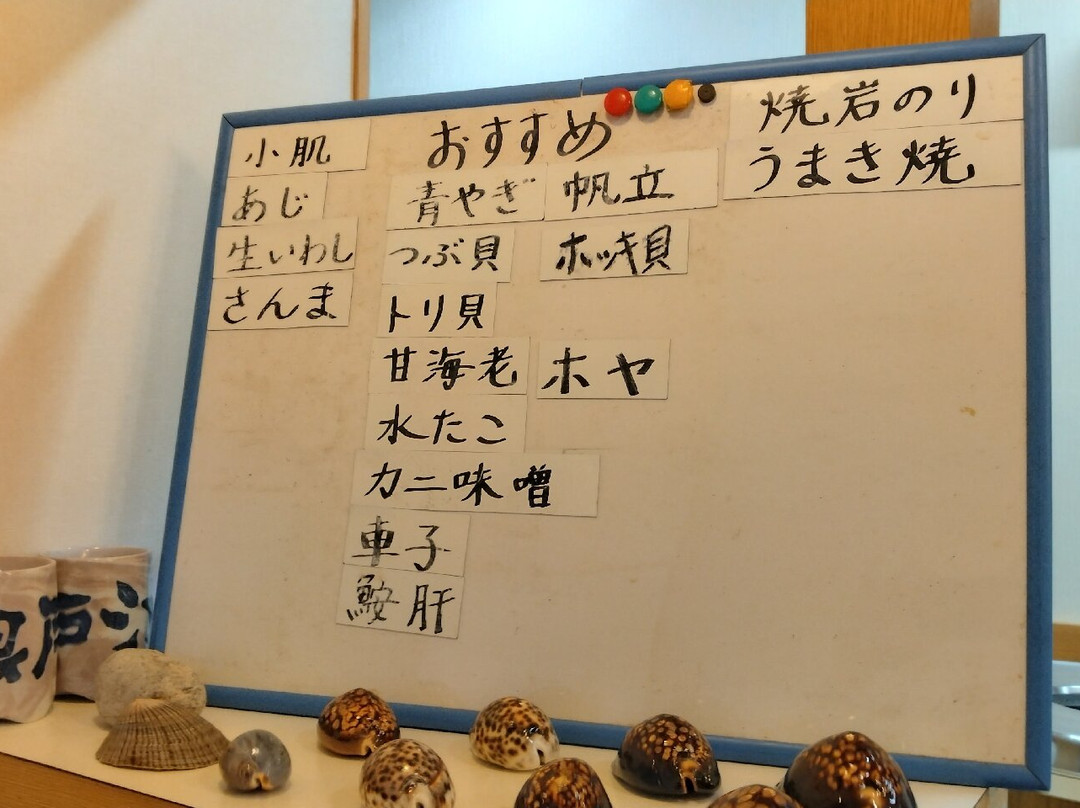 おすすめ
小肌
あじ
生いわし
さんま
青やぎ
つぶ貝
トリ貝
甘海老
水たこ
カニ味噌
車子
鮟肝
帆立
ホッキ貝
ホヤ
焼岩のり
うまき焼